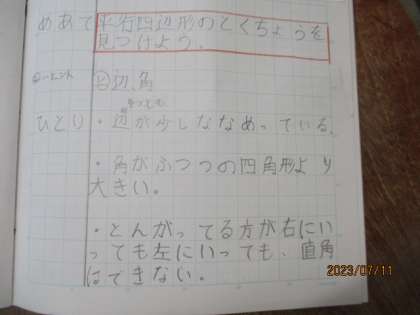 めあて 平行四辺形のとくちょうを
見つけよう。
ヒント 辺、角
ひとり ・辺が少しななめっている。
・角がふつつの四角形より
大きい。
・とんがってる方が右にい
っても左にいっても、直角
はできない。
2023/07/11